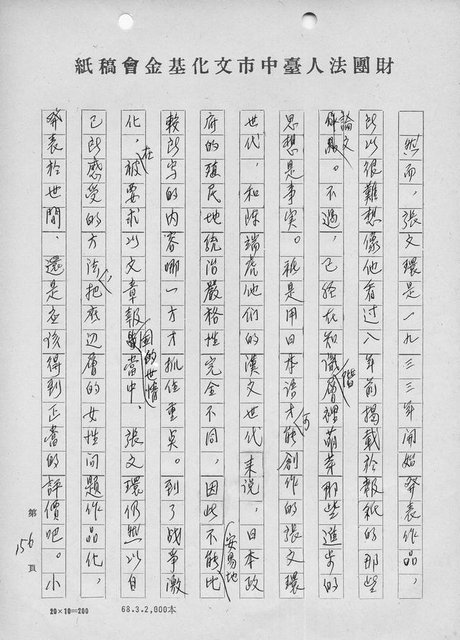 財團法人臺中市文化基金會稿紙
然而,張文環是一九三三年開始發表作品,
所以很難想像他看過八年前揭載於報紙的那些
論文。不過,已經在知識階層裡萌芽那些進步的
思想是事实。祇是用日本语才可能創作的張文環
世代,和陳端虎他們的漢文世代来説,日本政
府的殖民地統治嚴格性完全不同,因此不能安易地比
較所写的内容哪一方才抓住重奌。到了战爭激
化,在被要求以文章報國的世情當中,張文環仍然以自
己所感受的方法,把底辺層的女性问題作品化,
發表於世間,還是应该得到正當的評價吧。小
第156頁
20×10=200
68.3.2,000本